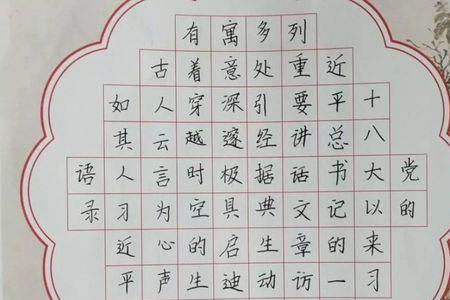 党的
十八大以来习
近平总书记的一
列重要讲话文章访
多处引经据典生动
寓意深邃极具启迪
有着穿越时空的生
古人云言为心声
如其人习近平
语录